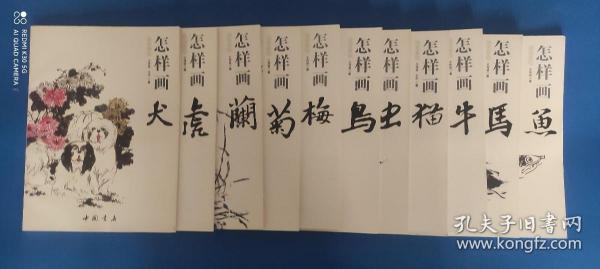 REDMI K30 5G
AI QUAD CAMERA
怎样画
犬
中国书店
怎样画
虎
怎样画
蘭
怎样画
菊
怎样画
梅
怎样画
鳥
怎样画
虫
怎样画
猫
怎样画
牛
怎样画
馬
怎样画
魚
孔夫子旧书网
www.kongfz.com